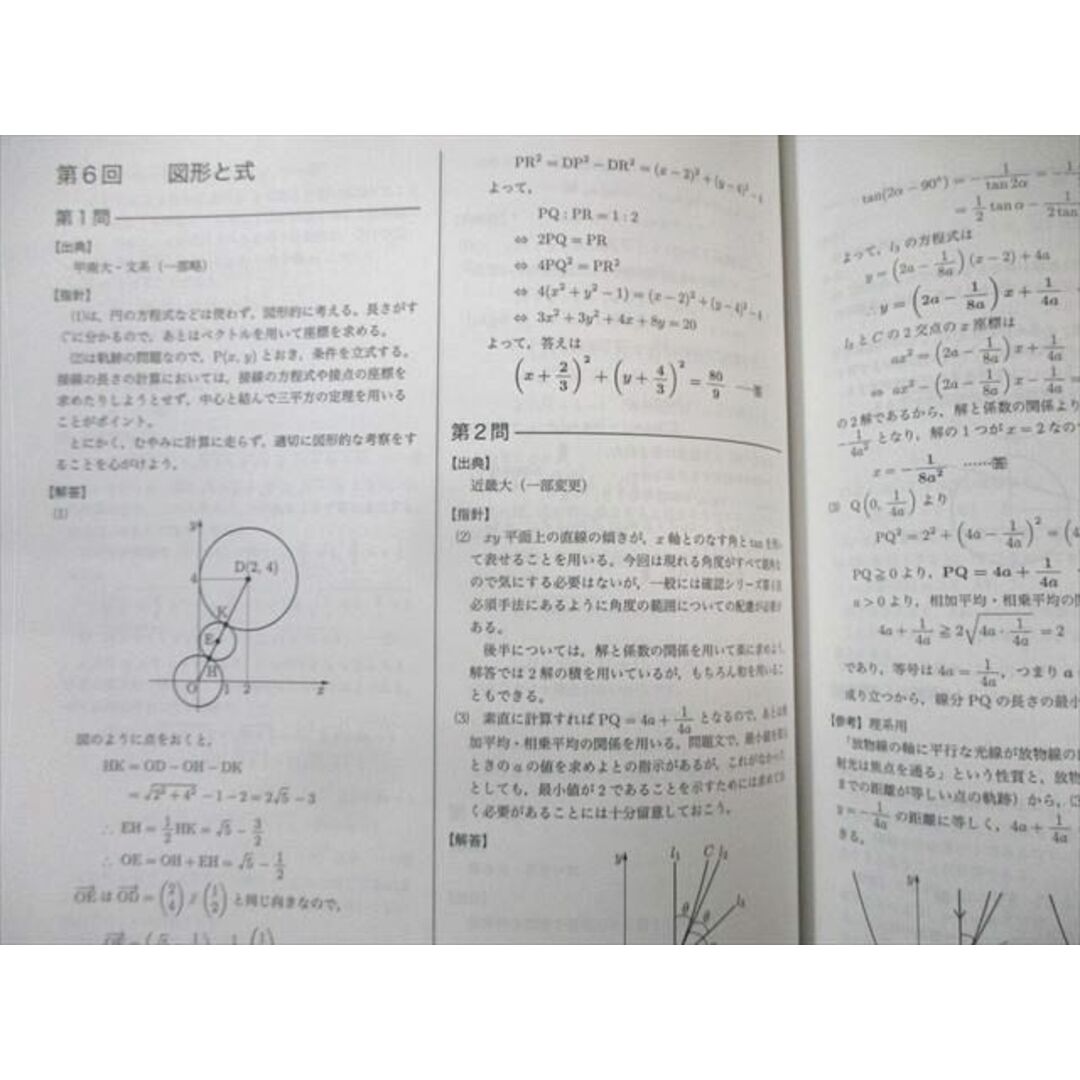 第6回 図形と式
第1問
【出典】
甲南大・文系（一部略）
【指針】
(1)は，円の方程式などは使わず，図形的に考える。長さがす
ぐに分かるので，あとはベクトルを用いて座標を求める。
(2)は軌跡の問題なので，P(x, y)とおき，条件を立式する。
接線の長さの計算においては，接線の方程式や接点の座標を
求めたりしようとせず，中心と結んで三平方の定理を用いる
ことがポイント。
とにかく，むやみに計算に走らず，適切に図形的な考察をす
ることを心がけよう。
【解答】
(1)
y
D(2, 4)
4
K
E
H
O 1 2 x
図のように点をおくと，
HK = OD − OH − DK
= √(2² + 4²) − 1 − 2 = 2√5 − 3
∴ EH = 1/2 HK = √5 − 3/2
∴ OE = OH + EH = √5 − 1/2
OE は OD = (2 4) // (1 2) と同じ向きなので，
PR² = DP² − DR² = (x − 2)² + (y − 4)² − 4
よって，
PQ : PR = 1 : 2
⇔ 2PQ = PR
⇔ 4PQ² = PR²
⇔ 4(x² + y² − 1) = (x − 2)² + (y − 4)² − 4
⇔ 3x² + 3y² + 4x + 8y = 20
よって，答えは
(x + 2/3)² + (y + 4/3)² = 80/9 ……答
第2問
【出典】
近畿大（一部変更）
【指針】
(2) xy平面上の直線の傾きが，x軸とのなす角とtanを用い
て表せることを用いる。今回は現れる角度がすべて鋭角な
ので気にする必要はないが，一般には確認シリーズ
必須手法にあるように角度の範囲についての配慮が必要で
ある。
後半については，解と係数の関係を用いて楽に求めよう。
解答では2解の積を用いているが，もちろん和を用いるこ
ともできる。
(3) 素直に計算すればPQ = 4a + 1/4a となるので，あとは相
加平均・相乗平均の関係を用いる。問題文で，最小値を取る
ときのaの値を求めよとの指示があるが，これがなかった
としても，最小値が2であることを示すためには求めてお
く必要があることには十分留意しておこう。
【解答】
y l₁ C l₂
θ θ l₃
tan(2α − 90°) = − 1/tan 2α = −
= 1/2 tan α −
よって，l₃の方程式は
y = (2a − 1/8a)(x − 2) + 4a
∴ y = (2a − 1/8a)x + 1/4a
l₃とCの2交点のx座標は
ax² = (2a − 1/8a)x + 1/4a
⇔ ax² − (2a − 1/8a)x − 1/4a =
の2解であるから，解と係数の関係より
− 1/4a² となり，解の1つが x = 2 なので
x = − 1/8a² ……答
(3) Q(0, 1/4a) より
PQ² = 2² + (4a − 1/4a)² =
PQ ≧ 0 より，PQ = 4a + 1/4a
a > 0 より，相加平均・相乗平均の
4a + 1/4a ≧ 2√(4a · 1/4a) = 2
であり，等号は 4a = 1/4a，つまり a
成り立つから，線分PQの長さの最小
【参考】理系用
「放物線の軸に平行な光線が放物線の
射光は焦点を通る」という性質と，放物
までの距離が等しい点の軌跡）から，
y = − 1/4a の距離に等しく，4a + 1/4a
きる。
y